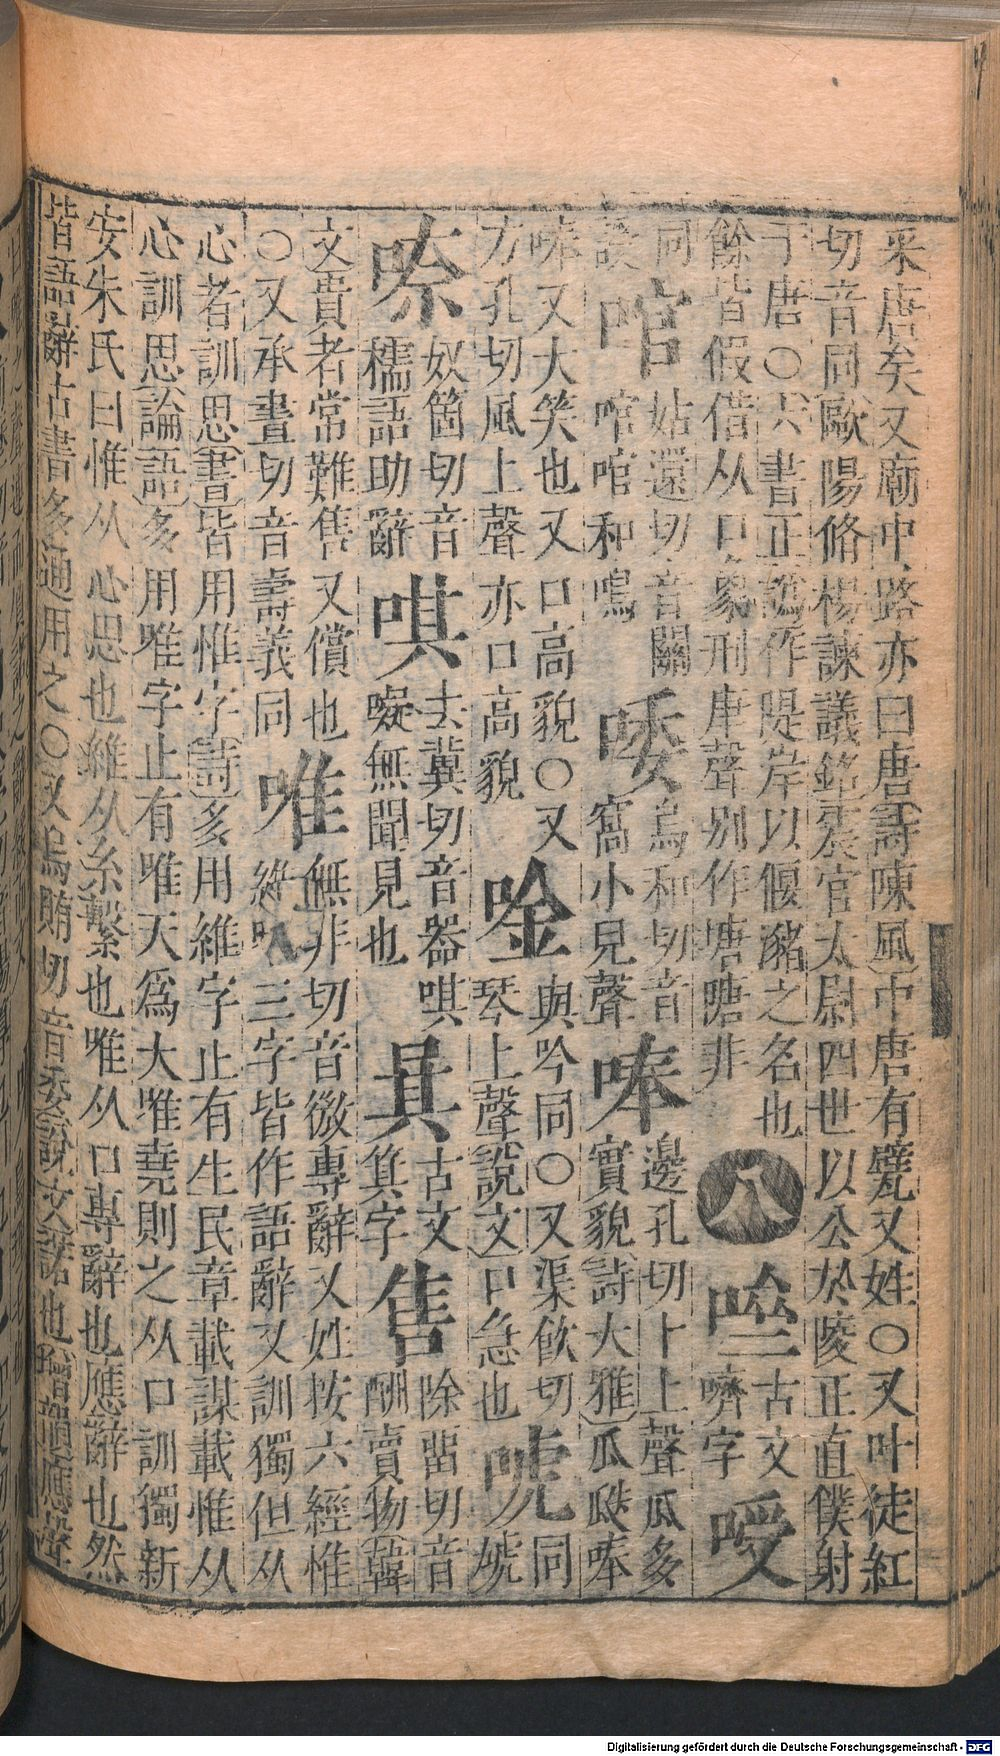 采唐矣又廟中路亦曰唐詩陳風中唐有甓又姓○又叶徒紅
切音同歐陽脩楊諫議銘震官太尉四世以公於陵正直僕射
于唐○六書正譌作隄岸以偃瀦之名也 八 𠷌 古文嚌字 㖟
餘皆假借从口象形庚聲別作塘㙶非
同 㖖 姑還切音關㖖㖖和鳴 㖿 烏和切音窩小兒聲 唪 邊孔切卜上聲瓜多實貌詩大雅瓜瓞唪
唪又大笑也又口高貌○又方孔切風上聲亦口高貌 唫 與吟同○又渠飲切琴上聲說文口急也 唬 同虓
㖠 奴箇切音糯語助辭 唭 去冀切音器唭㘈無聞見也 㖷 古文箕字 售 除畱切音酬賣物韓
文貴者常難售又償也 唯 無非切音微專辭又姓按六經惟
○又承晝切音壽義同 維唯三字皆作語辭又訓獨但从
心者訓思書皆用惟字詩多用維字止有生民章載謀載惟从
心訓思論語多用唯字止有唯天爲大唯堯則之从口訓獨新
安朱氏曰惟从心思也維从糸繫也唯从口專辭也應辭也然
皆語辭古書多通用之○又烏賄切音委說文諾也增韻應聲
Digitalisierung gefördert durch die Deutsche Forschungsgemeinschaft - DFG